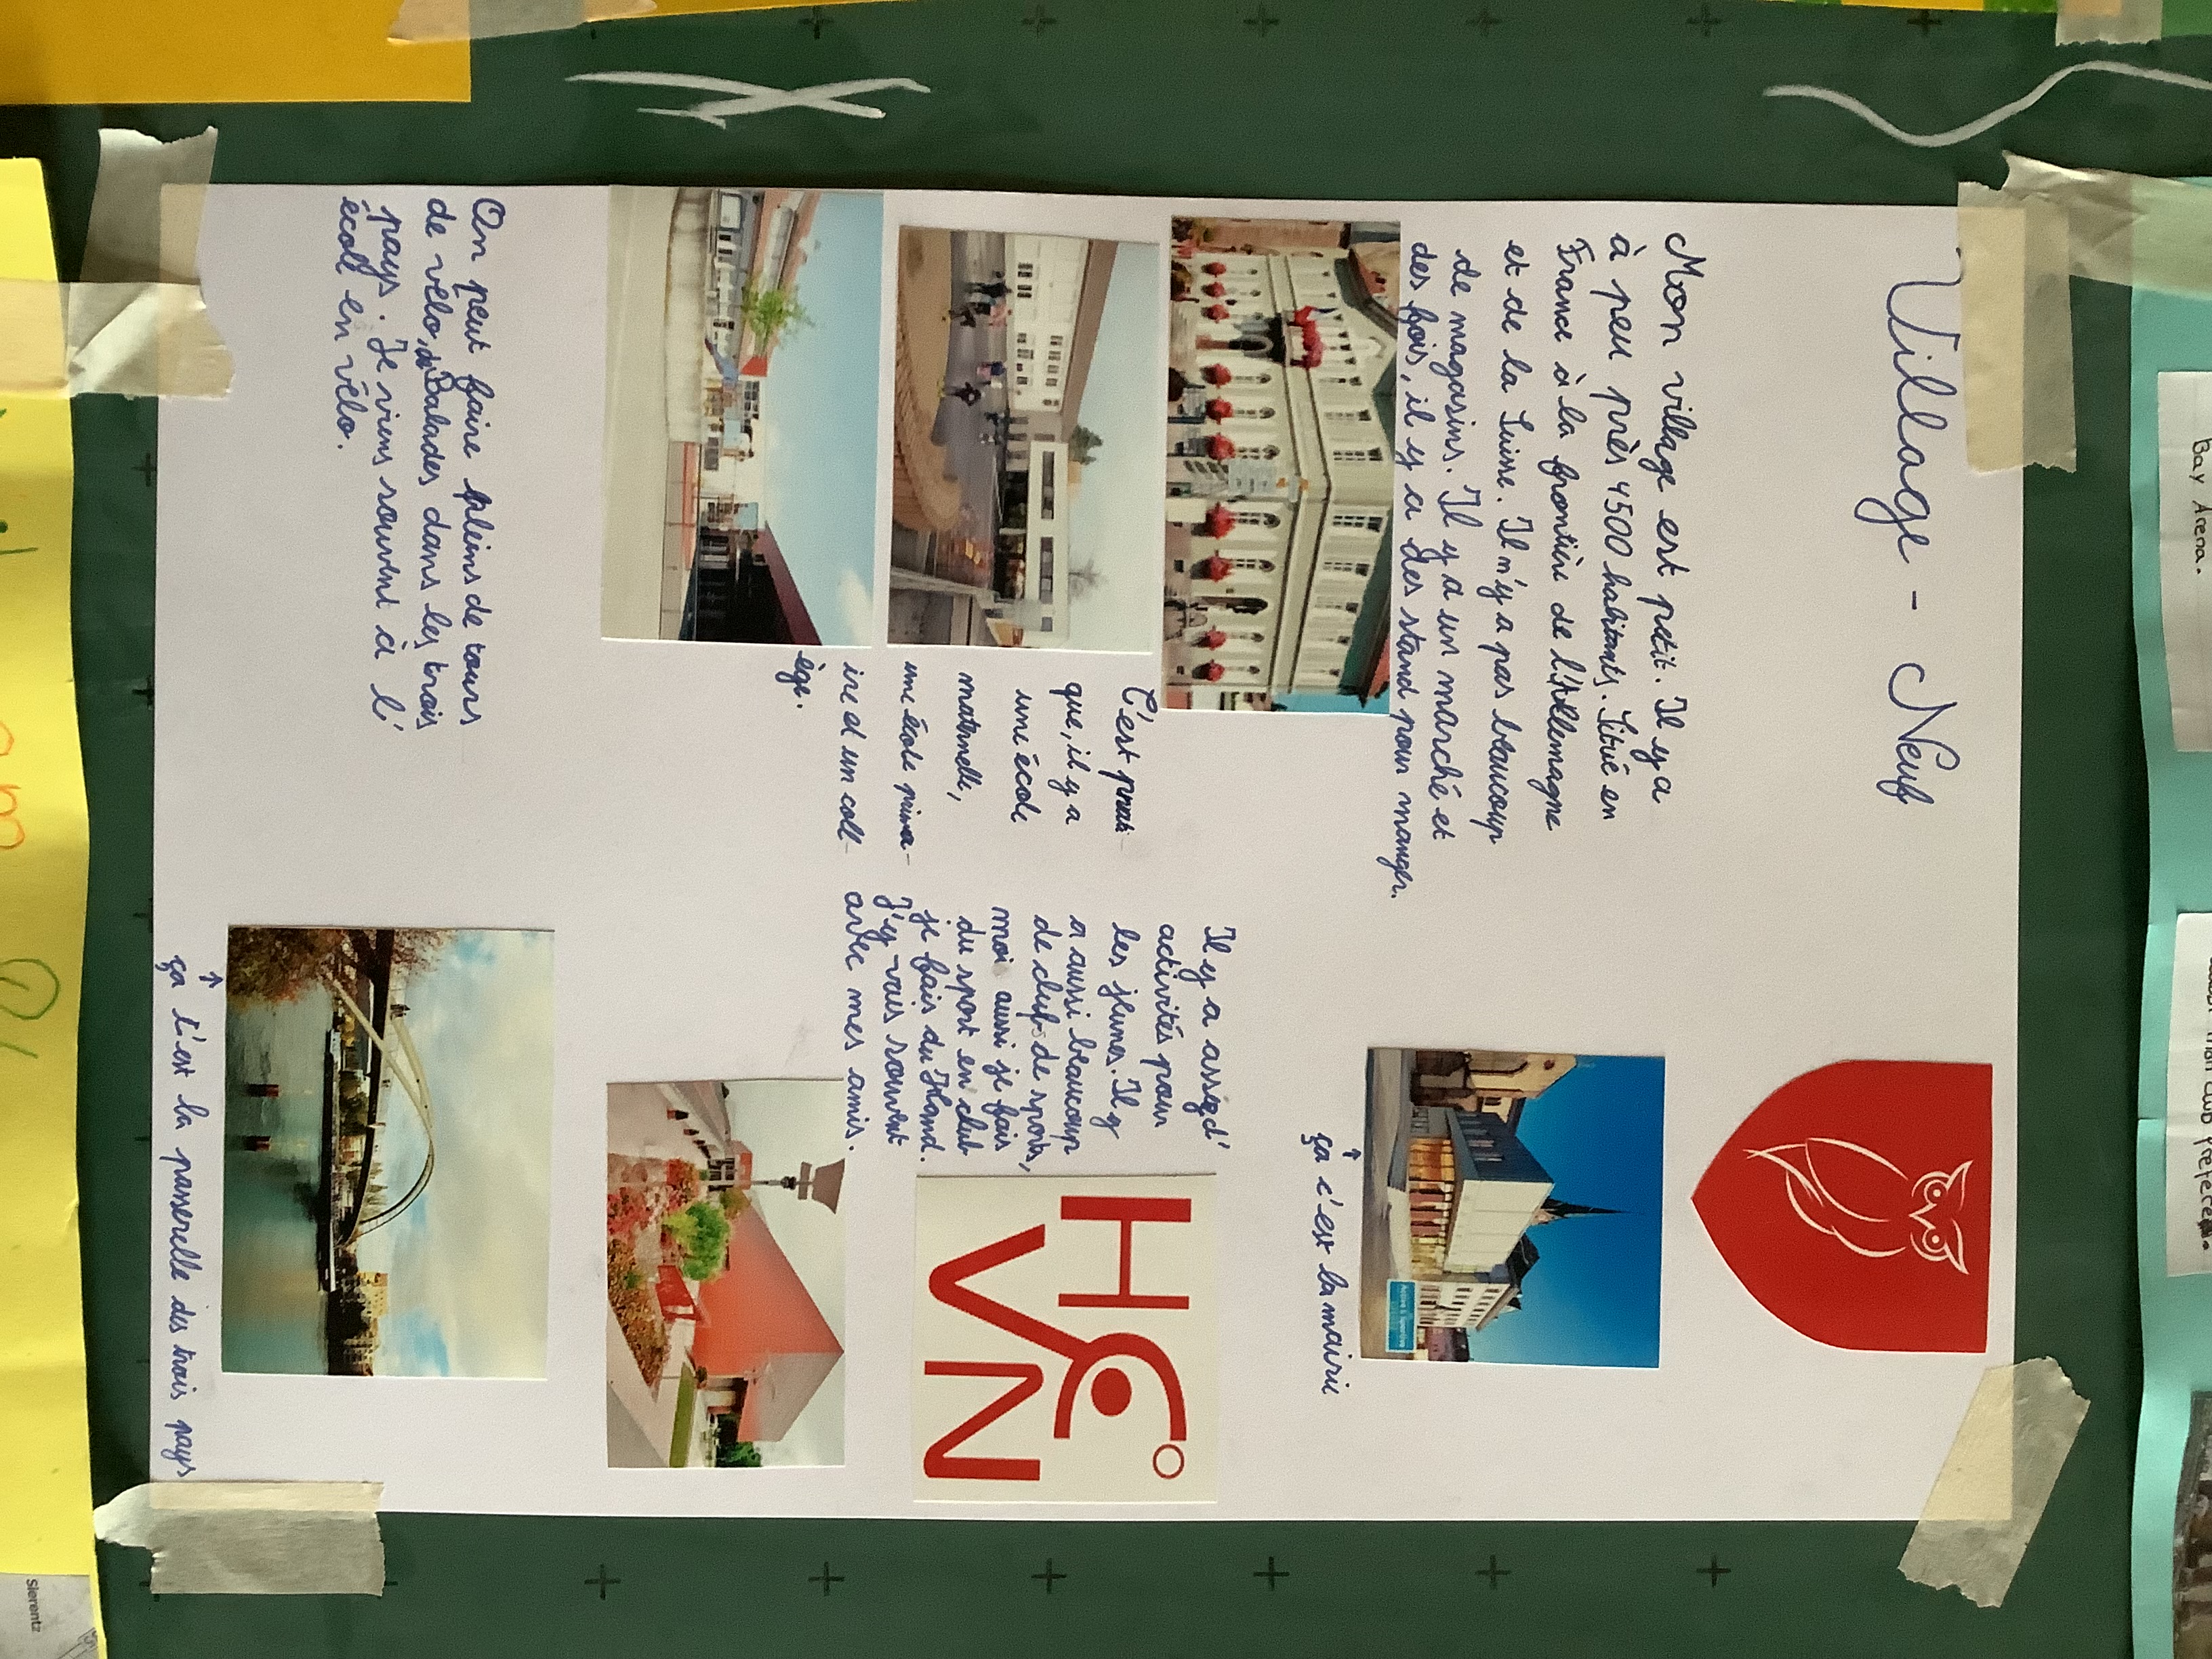 Village - Neuf
Mon village est petit. Il y a
à peu près 4500 habitants. Situé en
France à la frontière de l'Allemagne
et de la Suisse. Il n'y a pas beaucoup
de magasins. Il y a un marché et
des fois, il y a des stand pour manger.
ça c'est la mairie
C'est prati-
que, il y a
une école
maternelle,
une école prima-
ire et un coll-
ège.
Il y a assez d'
activités pour
les jeunes. Il y
a aussi beaucoup
de clubs de sports,
moi aussi je fais
du sport en club
je fais du Hand.
J'y vais souvent
avec mes amis.
HC
VN
On peut faire pleins de tours
de vélo, de Balades dans les trois
pays. Je viens souvent à l'
école en vélo.
ça c'est la passerelle des trois pays
Bay Arena.
Sierentz